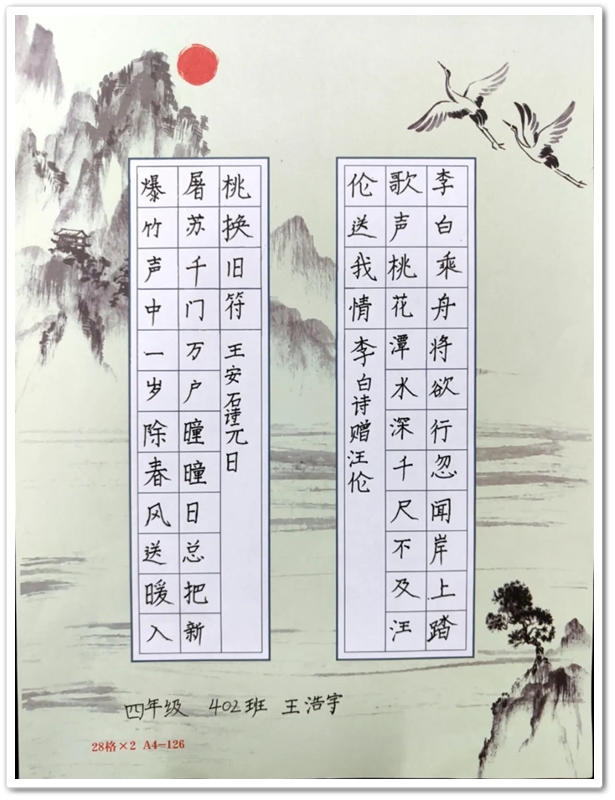 李白乘舟将欲行忽闻岸上踏
歌声桃花潭水深千尺不及汪
伦送我情 李白诗赠汪伦
爆竹声中一岁除春风送暖入
屠苏千门万户瞳瞳日总把新
桃换旧符 王安石谨元日
四年级 402班 王浩宇
28格×2 A4=126